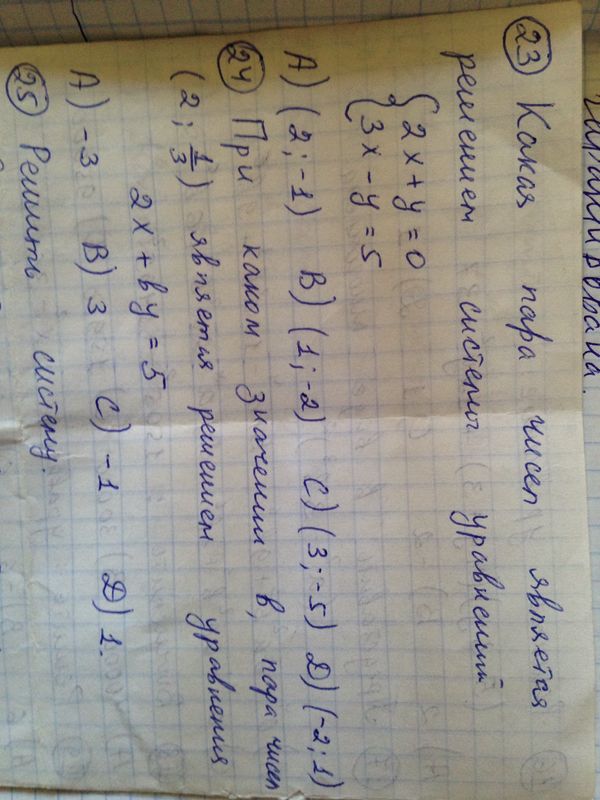 гарантирована.
23 Какая пара чисел является
решением системы уравнений
{2x+y=0
3x-y=5
A) (2;-1) B) (1;-2) C) (3;-5) Д) (-2;1)
24 При каком значении в, пара чисел
(2; 1/3) является решением уравнения
2x+вy=5
A) -3 B) 3 C) -1 Д) 1.
25 Решить систему.